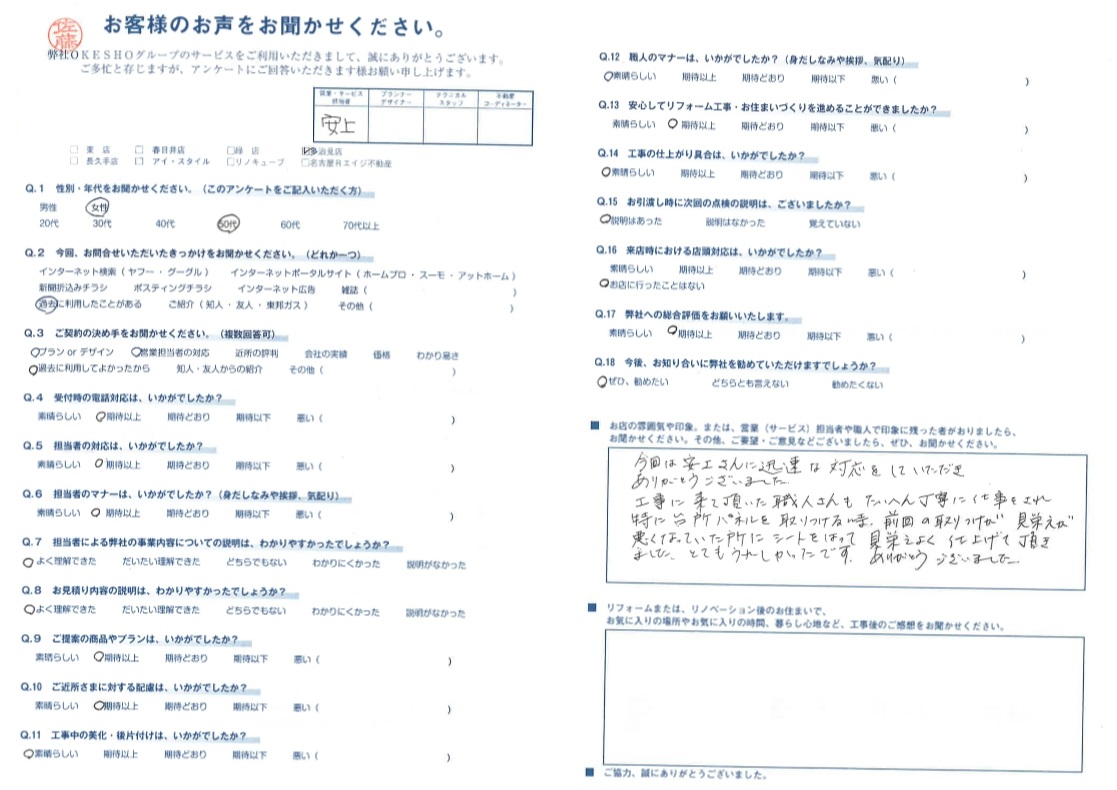 佐藤
お客様のお声をお聞かせください。
弊社OKESHOグループのサービスをご利用いただきまして、誠にありがとうございます。
ご多忙と存じますが、アンケートにご回答いただきます様お願い申し上げます。
営業・サービス担当者 プランナーデザイナー テクニカルスタッフ 不動産コーディネーター
安上
□ 東 店 □ 春日井店 □緑 店 ☑多治見店
□ 長久手店 □ アイ・スタイル □リノキューブ □名古屋Rエイジ不動産
Q.1 性別・年代をお聞かせください。(このアンケートをご記入いただく方)
男性 女性
20代 30代 40代 50代 60代 70代以上
Q.2 今回、お問合せいただいたきっかけをお聞かせください。(どれか一つ)
インターネット検索(ヤフー・グーグル) インターネットポータルサイト(ホームプロ・スーモ・アットホーム)
新聞折込みチラシ ポスティングチラシ インターネット広告 雑誌( )
過去に利用したことがある ご紹介(知人・友人・東邦ガス) その他( )
Q.3 ご契約の決め手をお聞かせください。(複数回答可)
プラン or デザイン 営業担当者の対応 近所の評判 会社の実績 価格 わかり易さ
過去に利用してよかったから 知人・友人からの紹介 その他( )
Q.4 受付時の電話対応は、いかがでしたか?
素晴らしい 期待以上 期待どおり 期待以下 悪い( )
Q.5 担当者の対応は、いかがでしたか?
素晴らしい 期待以上 期待どおり 期待以下 悪い( )
Q.6 担当者のマナーは、いかがでしたか?(身だしなみや挨拶、気配り)
素晴らしい 期待以上 期待どおり 期待以下 悪い( )
Q.7 担当者による弊社の事業内容についての説明は、わかりやすかったでしょうか?
よく理解できた だいたい理解できた どちらでもない わかりにくかった 説明がなかった
Q.8 お見積り内容の説明は、わかりやすかったでしょうか?
よく理解できた だいたい理解できた どちらでもない わかりにくかった 説明がなかった
Q.9 ご提案の商品やプランは、いかがでしたか?
素晴らしい 期待以上 期待どおり 期待以下 悪い( )
Q.10 ご近所さまに対する配慮は、いかがでしたか?
素晴らしい 期待以上 期待どおり 期待以下 悪い( )
Q.11 工事中の美化・後片付けは、いかがでしたか?
素晴らしい 期待以上 期待どおり 期待以下 悪い( )
Q.12 職人のマナーは、いかがでしたか?(身だしなみや挨拶、気配り)
素晴らしい 期待以上 期待どおり 期待以下 悪い( )
Q.13 安心してリフォーム工事・お住まいづくりを進めることができましたか?
素晴らしい 期待以上 期待どおり 期待以下 悪い( )
Q.14 工事の仕上がり具合は、いかがでしたか?
素晴らしい 期待以上 期待どおり 期待以下 悪い( )
Q.15 お引渡し時に次回の点検の説明は、ございましたか?
説明はあった 説明はなかった 覚えていない
Q.16 来店時における店頭対応は、いかがでしたか?
素晴らしい 期待以上 期待どおり 期待以下 悪い( )
お店に行ったことはない
Q.17 弊社への総合評価をお願いいたします。
素晴らしい 期待以上 期待どおり 期待以下 悪い( )
Q.18 今後、お知り合いに弊社を勧めていただけますでしょうか?
ぜひ、勧めたい どちらとも言えない 勧めたくない
■ お店の雰囲気や印象。または、営業(サービス)担当者や職人で印象に残った者がおりましたら、
お聞かせください。その他、ご要望・ご意見などございましたら、ぜひ、お聞かせください。
今回は安上さんに迅速な対応をしていただき
ありがとうございました。
工事に来て頂いた職人さんもたいへん丁寧に仕事をされ
特に台所パネルを取りつける時、前回の取りつけが見栄えが
悪くなっていた所にシートをはって見栄えよく仕上げて頂き
ました。とてもうれしかったです。ありがとうございました。
■ リフォームまたは、リノベーション後のお住まいで、
お気に入りの場所やお気に入りの時間、暮らし心地など、工事後のご感想をお聞かせください。
■ ご協力、誠にありがとうございました。